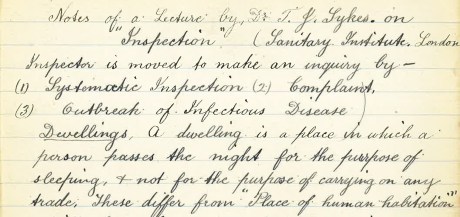 Notes of a Lecture by, Dr T. J. Sykes. on
"Inspection". (Sanitary Institute. London
Inspector is moved to make an inquiry by—
(1) Systematic Inspection (2) Complaint,
(3) Outbreak of Infectious Disease
Dwellings, A dwelling is a place in which a
person passes the night for the purpose of
sleeping, & not for the purpose of carrying on any
trade; These differ from "Place of human habitation"